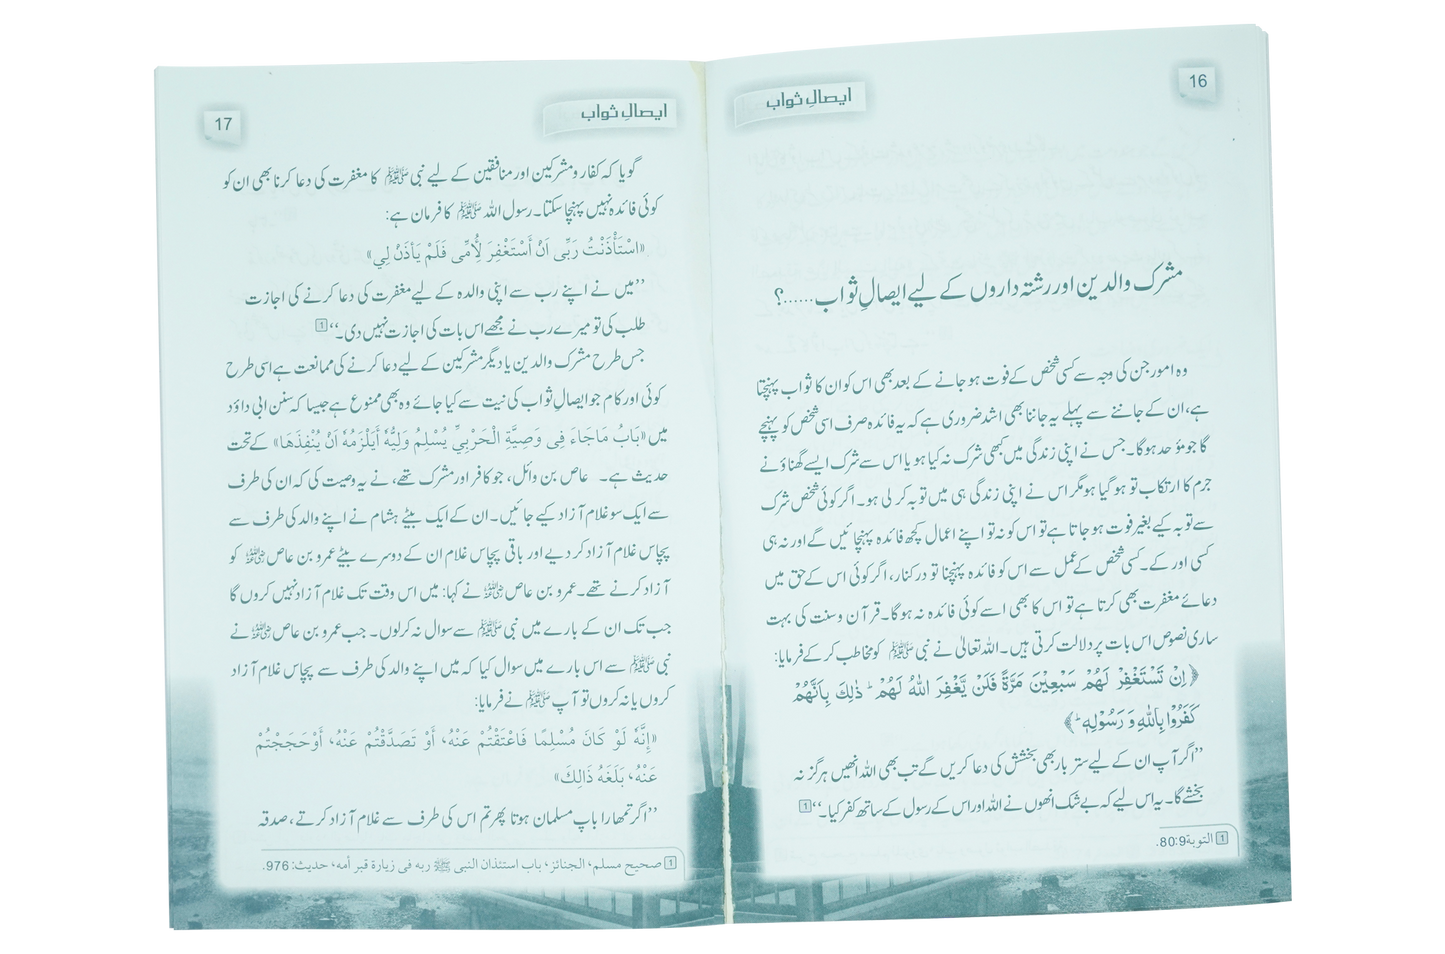 16
ایصالِ ثواب
مشرک والدین اور رشتہ داروں کے لیے ایصالِ ثواب......؟
وہ امور جن کی وجہ سے کسی شخص کے فوت ہو جانے کے بعد بھی اس کو ان کا ثواب پہنچتا
ہے، ان کے جاننے سے پہلے یہ جاننا بھی اشد ضروری ہے کہ یہ فائدہ صرف اسی شخص کو پہنچے
گا جو موحد ہوگا۔ جس نے اپنی زندگی میں کبھی شرک نہ کیا ہو یا اس سے شرک ایسے گھناؤنے
جرم کا ارتکاب تو ہو گیا ہو مگر اس نے اپنی زندگی ہی میں توبہ کر لی ہو۔ اگر کوئی شخص شرک
سے توبہ کیے بغیر فوت ہو جاتا ہے تو اس کو نہ تو اپنے اعمال کچھ فائدہ پہنچائیں گے اور نہ ہی
کسی اور کے۔ کسی شخص کے عمل سے اس کو فائدہ پہنچنا تو درکنار، اگر کوئی اس کے حق میں
دعائے مغفرت بھی کرتا ہے تو اس کا بھی اسے کوئی فائدہ نہ ہوگا۔ قرآن و سنت کی بہت
ساری نصوص اس بات پر دلالت کرتی ہیں۔ اللہ تعالیٰ نے نبی ﷺ کو مخاطب کر کے فرمایا:
﴿اِنْ تَسْتَغْفِرْ لَهُمْ سَبْعِيْنَ مَرَّةً فَلَنْ يَّغْفِرَ اللّٰهُ لَهُمْ ؕ ذٰلِكَ بِاَنَّهُمْ
كَفَرُوْا بِاللّٰهِ وَ رَسُوْلِهٖ ؕ﴾
’’اگر آپ ان کے لیے ستر بار بھی بخشش کی دعا کریں گے تب بھی اللہ انھیں ہرگز نہ
بخشے گا۔ یہ اس لیے کہ بے شک انھوں نے اللہ اور اس کے رسول کے ساتھ کفر کیا۔‘‘ 1
1 التوبة 80:9.
ایصالِ ثواب
17
گویا کہ کفار و مشرکین اور منافقین کے لیے نبی ﷺ کا مغفرت کی دعا کرنا بھی ان کو
کوئی فائدہ نہیں پہنچا سکتا۔ رسول اللہ ﷺ کا فرمان ہے:
«اسْتَأْذَنْتُ رَبِّى اَنْ أَسْتَغْفِرَ لِأُمِّى فَلَمْ يَأْذَنْ لِي»
’’میں نے اپنے رب سے اپنی والدہ کے لیے مغفرت کی دعا کرنے کی اجازت
طلب کی تو میرے رب نے مجھے اس بات کی اجازت نہیں دی۔‘‘ 1
جس طرح مشرک والدین یا دیگر مشرکین کے لیے دعا کرنے کی ممانعت ہے اسی طرح
کوئی اور کام جو ایصالِ ثواب کی نیت سے کیا جائے وہ بھی ممنوع ہے جیسا کہ سنن ابی داؤد
میں «بَابُ مَاجَاءَ فِى وَصِيَّةِ الْحَرْبِيِّ يُسْلِمُ وَلِيُّهُ أَيَلْزَمُهُ اَنْ يُنْفِذَهَا» کے تحت
حدیث ہے۔ عاص بن وائل، جو کافر اور مشرک تھے، نے یہ وصیت کی کہ ان کی طرف
سے ایک سو غلام آزاد کیے جائیں۔ ان کے ایک بیٹے ہشام نے اپنے والد کی طرف سے
پچاس غلام آزاد کر دیے اور باقی پچاس غلام ان کے دوسرے بیٹے عمرو بن عاص رضی اللہ عنہ کو
آزاد کرنے تھے۔ عمرو بن عاص رضی اللہ عنہ نے کہا: میں اس وقت تک غلام آزاد نہیں کروں گا
جب تک ان کے بارے میں نبی ﷺ سے سوال نہ کر لوں۔ جب عمرو بن عاص رضی اللہ عنہ نے
نبی ﷺ سے اس بارے میں سوال کیا کہ میں اپنے والد کی طرف سے پچاس غلام آزاد
کروں یا نہ کروں تو آپ ﷺ نے فرمایا:
«إِنَّهُ لَوْ كَانَ مُسْلِمًا فَاعْتَقْتُمْ عَنْهُ، أَوْ تَصَدَّقْتُمْ عَنْهُ، أَوْحَجَجْتُمْ
عَنْهُ، بَلَغَهُ ذَالِكَ»
’’اگر تمھارا باپ مسلمان ہوتا پھر تم اس کی طرف سے غلام آزاد کرتے، صدقہ
1 صحیح مسلم، الجنائز، باب استئذان النبی ﷺ ربه فی زیارة قبر أمه، حدیث: 976.